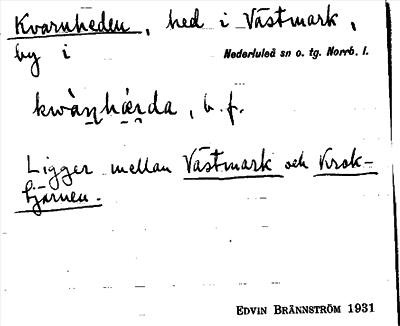 Kvarnheden, hed i Västmark,
by i Nederluleå sn o. tg. Norrb. l.
kwàṇhǻṛda, b. f.
Ligger mellan Västmark och Krok-
tjärnen.
EDVIN BRÄNNSTRÖM 1931